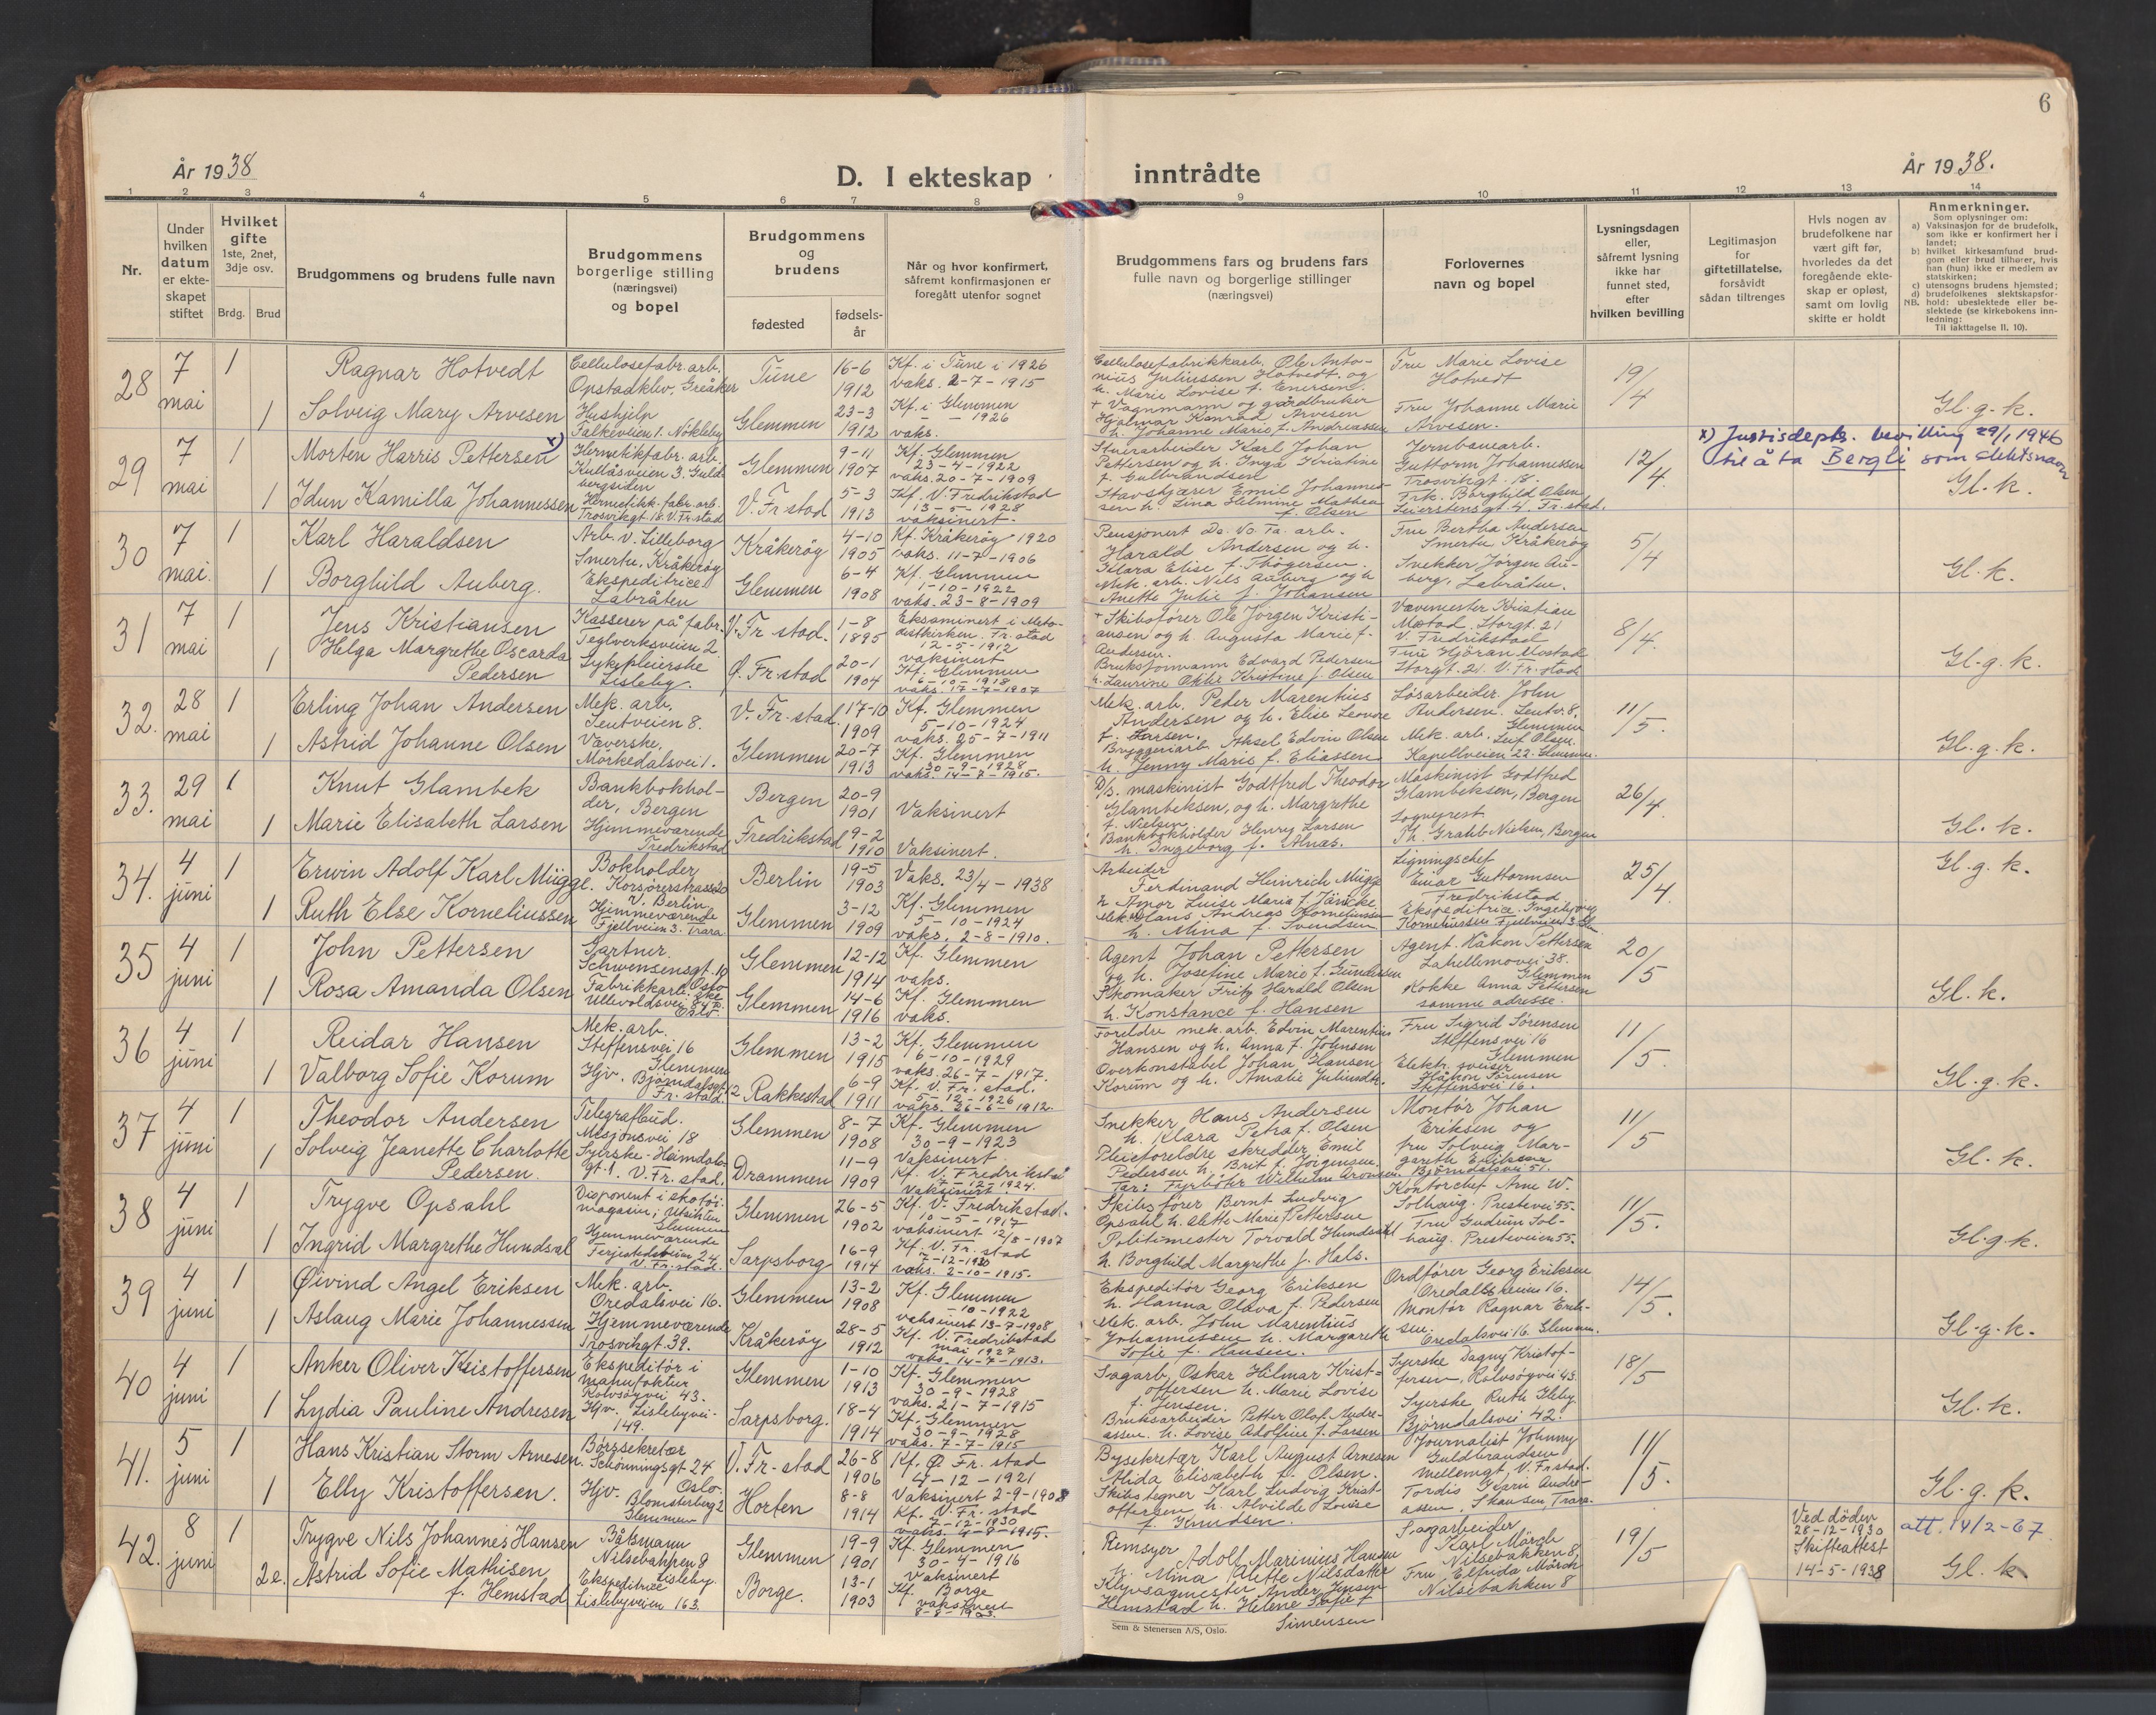 6
År 1938
D. I ekteskap inntrådte
År 1938.
1 2 3 4 5 6 7 8 9 10 11 12 13 14
Nr.
Under hvilken datum er ekte-skapet stiftet
Hvilket gifte
1ste, 2net, 3dje osv.
Brdg. Brud
Brudgommens og brudens fulle navn
Brudgommens borgerlige stilling (næringsvei) og bopel
Brudgommens og brudens
fødested
fødsels-år
Når og hvor konfirmert, såfremt konfirmasjonen er foregått utenfor sognet
Brudgommens fars og brudens fars fulle navn og borgerlige stillinger (næringsvei)
Forlovernes navn og bopel
Lysningsdagen eller, såfremt lysning ikke har funnet sted, efter hvilken bevilling
Legitimasjon for giftetillatelse, forsåvidt sådan tiltrenges
Hvis nogen av brudefolkene har vært gift før, hvorledes da det foregående ekte-skap er opløst, samt om lovlig skifte er holdt
Anmerkninger.
Som oplysninger om:
a) Vaksinasjon for de brudefolk, som ikke er konfirmert her i landet;
b) hvilket kirkesamfund brud-gom eller brud tilhører, hvis han (hun) ikke er medlem av statskirken;
c) utensogns brudens hjemsted;
d) brudefolkenes slektskapsfor-hold: ubeslektede eller be-slektede (se kirkebokens inn-ledning:
NB.
Til iakttagelse II. 10).
28 7 mai 1 Ragnar Hotvedt
Cellulosefabr.arb. Opstadklev, Greåker
Tune 16-6 1912
Kf. i Tune i 1926 vaks. 2-7-1915
Cellulosefabrikkarb. Ole Anto-nius Juliussen Hotvedt og h. Marie Lovise f. Enersen.
Fru Marie Lovise Hotvedt
19/4
1 Solveig Mary Arvesen
Hushjelp Falkeveien 1. Nökleby
Glemmen 23-3 1912
Kf. i Glemmen 1926 vaks.
+ Vognmann og gårdbruker Hjalmar Konrad Arvesen h. Johanne Marie f. Andreassen
Fru Johanne Marie Arvesen.
Gl.g.k.
29 7 mai 1 Morten Harris Pettersen x)
Hermetikkfabr. arb. Kullåsveien 3. Guld-bergsiden
Glemmen 9-11 1907
Kf. Glemmen 23-4-1922 vaks. 20-7-1909
Stuerarbeider Karl Johan Pettersen og h. Inga Kristine f. Gulbrandsen
Jernbanearb. Guttorm Johannessen Trosvikgt. 18.
12/4.
x) Justisdepts. bevilling 29/1 1946 til å ta Bergli som slektsnavn
1 Idun Kamilla Johannessen
Hermetikk.fabr.arb. Trosvikgt. 18. V. Fr.stad
V. Fr.stad 5-3 1913
Kf. V. Fredrikstad 13-5-1928 vaksinert.
Emil Johannes-sen h. Lina Helmine Mathea f. Olsen
Frk. Borghild Olsen Feierstensgt. 4. Fr.stad.
Gl.k.
30 7 mai. 1 Karl Haraldsen
Arb. v. Lilleborg Smertu, Kråkeröy
Kråkeröy 4-10 1905
Kf. Kråkeröy 1920 vaks. 11-7-1906
Pensjonert De No Fa. arb. Harald Andersen og h. Klara Elise f. Thögersen.
Fru Bertha Andersen Smertu Kråkeröy
5/4
1 Borghild Auberg.
Ekspeditrice Labråten
Glemmen 6-4 1908
Kf. Glemmen 1-10-1922 vaks. 23-8-1909
Mek. arb. Nils Auberg og h. Anette Julie f. Johansen
Snekker Jörgen Au-berg, Labråten.
Gl.k.
31 7 mai 1 Jens Kristiansen
Kasserer på fabr. Teglverksveien 2
V. Fr.stad. 1-8 1895
Eksaminert i Meto-distkirken Fr.stad 12-5-1912 vaksinert
+ Skibsförer Ole Jörgen Kristi-ansen og h. Augusta Marie f. Andersen.
Vævemester Kristian Mostad. Storgt. 21 V. Fredrikstad
8/4.
1 Helga Margrethe Oscarda Pedersen
Sykepleierske Lisleby.
Ø. Fr.stad 20-1 1904
Kf. Glemmen 6-10-1918 vaks. 17-7-1907
Bruksformann Edvard Pedersen h. Laurine Kristine f. Olsen
Fru Mostad Storgt. 21. V. Fr.stad
Gl.g.k.
32. 28 mai 1 Erling Johan Andersen
Mek. arb. Leutveien 8.
V. Fr.stad. 17-10 1909
Kf. Glemmen 5-10-1924 vaks. 25-7-1911
Mek. arb. Peder Marentius Andersen og h. Elise Leonore f. Larsen.
Lösarbeider John Andersen. Leutv. 8. Glemmen
11/5.
1 Astrid Johanne Olsen
Væverske. Mörkedalsvei 1.
Glemmen 20-7 1913
Kf. Glemmen 30-9-1928 vaks. 14-8-1915.
Bryggeriarb. Aksel Edvin Olsen h. Jenny Marie f. Eliassen
Mek. arb. Leif Olsen. Kapellveien 22. Glemmen.
Gl.g.k.
33. 29 mai 1 Knut Glambek
Bankbokhol-der, Bergen
Bergen 20-9 1901
Vaksinert
D/S. maskinist Godtfred Theodor Glambeksen, og h. Margrethe f. Nielsen
Maskinist Godtfred Glambeksen, Bergen
26/4.
1 Marie Elisabeth Larsen
Hjemmeværende Fredrikstad
Fredrikstad 9-2 1910
Vaksinert.
Bankbokholder Henry Larsen h. Ingeborg f. Alnæs.
Sogneprest Th. Grahb Nielsen, Bergen
Gl.k.
34. 4 juni 1 Erwin Adolf Karl Mügge.
Bokholder Korsörerstrasse 20 V. Berlin
Berlin 19-5 1903
Vaks. 23/4-1938
Arbeider Ferdinand Heinrich Mügge h. Amor Luise Maria f. Jäncke
Ligningschef Einar Guttormsen Fredrikstad
25/4.
Gl.g.k.
1 Ruth Else Korneliussen
Hjemmeværende Fjellveien 3. Trara
Glemmen 3-12 1909
Kf. Glemmen 5-10-1924 vaks. 2-8-1910.
Hans Andreas Korneliussen h. Mina f. Svendsen
Ekspeditrice Ingeborg Korneliussen Fjellveien 3 Gl.
35 4 juni 1 John Pettersen
Gartner. Schwensensgt. 10 Oslo
Glemmen 12-12 1914
Kf. Glemmen vaks.
Agent Johan Pettersen og h. Josefine Marie f. Gundersen
Agent. Håkon Pettersen Lahellemovei 38. Glemmen
20/5
1 Rosa Amanda Olsen
Fabrikkarb.ske Ullevoldsvei 84 Oslo.
Glemmen 14-6 1916
Kf. Glemmen vaks.
Skomaker Fritz Harald Olsen h. Konstance f. Hansen
Kokke Anna Pettersen samme adresse.
Gl.k.
36 4 juni 1 Reidar Hansen
Mek. arb. Steffensvei 16 Glemmen
Glemmen 13-2 1915
Kf. Glemmen 6-10-1929 vaks. 26-7-1917.
Foreldre mek. arb. Edvin Marentius Hansen og h. Anna f. Johnsen
Fru Sigrid Sörensen Steffensvei 16 Glemmen
11/5.
1 Valborg Sofie Korum
Hjv. Björndalsgt. 12 Fr.stad.
Rakkestad 6-9 1911
Kf. V. Fr.stad. 5-12-1926 vaks. 26-6-1912.
Overkonstabel Johan Hansen Korum og h. Amalie Juliusdtr.
Elektr. sveiser Håkon Sörensen Steffensvei 16.
Gl.g.k.
37 4 juni 1 Theodor Andersen
Telegrafbud. Misjonsvei 18
Glemmen 8-7 1908
Kf. Glemmen 30-9-1923 Vaksinert.
Snekker Hans Andersen h. Klara Petra f. Olsen
Montör Johan Eriksen og
11/5
1 Solveig Jeanette Charlotte Pedersen.
Syerske - Heimdals-gt. 1. V. Fr.stad.
Drammen 11-9 1909
Kf. V. Fredrikstad 7-12-1924. Vaksinert.
Pleieforeldre skredder Emil Pedersen h. Brit f. Jörgensen. Far: Fyrböter Wilhelm Aronsen
fru Solveig Mar-gareth Eriksen Björndalsvei 51.
Gl.k.
38 4 juni 1 Trygve Opsahl
Disponent i skotöi-magasin, Utsikten Glemmen
Glemmen 26-5 1902
Kf. V. Fredrikstad. 10-5-1917 vaksinert 12/8-1907
Skibsförer Bernt Ludvig Opsahl h. Elette Marie Pettersen
Kontorchef Arne W. Solhaug. Prestevei 55.
11/5.
1 Ingrid Margrethe Hundsal
Hjemmeværende Ferjestedsveien 24. V. Fr.stad.
Sarpsborg 16-9 1914
Kf. V. Fr.stad 7-12-1930 vaks. 2-10-1915.
Politimester Torvald Hundsal h. Borghild Margrethe f. Hals.
Fru Gudrun Sol-haug. Presteveien 55.
Gl.g.k.
39 4 juni 1 Øivind Angel Eriksen
Mek. arb. Oredalsvei 16.
Glemmen 13-2 1908
Kf. Glemmen -10-1922 vaksinert 13-7-1908
Ekspeditör Georg Eriksen h. Hanna Olava f. Pedersen
Ordförer Georg Eriksen Oredalsveien 16.
14/5.
1 Aslaug Marie Johannessen
Hjemmeværende Trosvikgt. 39.
Kråkeröy 28-5 1912
Kf. V. Fredrikstad mai 1927 vaks. 14-7-1913.
Mek. arb. John Marentius Johannessen h. Margareth Sofie f. Hansen.
Montör Ragnar Erik-sen. Oredalsvei 16 Glemmen.
Gl.g.k.
40 4 juni 1 Anker Oliver Kristoffersen
Ekspeditör i manufaktur Rolvsöyvei 43.
Glemmen 1-10 1913
Kf. Glemmen 30-9-1928 vaks. 21-7-1915
Sagarb. Oskar Hilmar Krist-offersen h. Marie Lovise f. Jensen.
Syerske Dagny Kristof-fersen, Rolvsöyvei 43.
18/5
1 Lydia Pauline Andresen
Hjv. Lislebyvei-149.
Sarpsborg. 18-4 1914
Kf. Glemmen 30-9-1928 vaks. 7-7-1915
Bruksarbeider Petter Olaf Andre-assen. h. Lovise Adolfine f. Larsen
Syerske Ruth Björndalsvei 42.
Gl.k.
41. 5 juni 1 Hans Kristian Storm Arnesen.
Börssekretær Schönningsgt 24 Oslo.
V. Fr-stad 26-8 1906
Kf. Ø Fr.stad 4-12-1921 Vaksinert 2-9-1908
Bysekretær Karl August Arnesen Alida Elisabeth f. Olsen.
Journalist Johnny Guldbrandsen Mellemgt. V. Fr.stad.
11/5.
1 Elly Kristoffersen.
Hjv. Blomsterberg 2 Glemmen
Horten 8-8 1914
Kf. V. Fr.stad 7-12-1930 vaks. 4-8-1915.
Skibstegner Karl Ludvig Krist-offersen h. Alvilde Lovise f. Knudsen.
Tordis Karin Andre-assen, Skausen, Trara.
Gl.g.k.
42. 8 juni 1 Trygve Nils Johannes Hansen
Båtsmann Nilsebakken 8 Lisleby.
Glemmen 19-9 1901
Kf. Glemmen 30-4-1916 Vaksinert
Remsyer Adolf Marinius Hansen h. Mina Alette Nilsdatter
Sagarbeider Karl Mörck Nilsebakken 8,
19/5
Ved döden 28-12-1930 Skifteattest 14-5-1938
att. 14/2-67
2e. Astrid Sofie Mathisen f. Hemstad
Ekspeditrice Lislebyveien 163.
Borge. 13-1 1903
Kf. Borge vaksinert 8-8-1903.
Klyvsagmester Ander Jensen Hemstad h. Helene Sofie f. Simensen
Fru Elfrida Mörck Nilsebakken 8
Gl.k.
Sem & Stenersen A/S, Oslo.